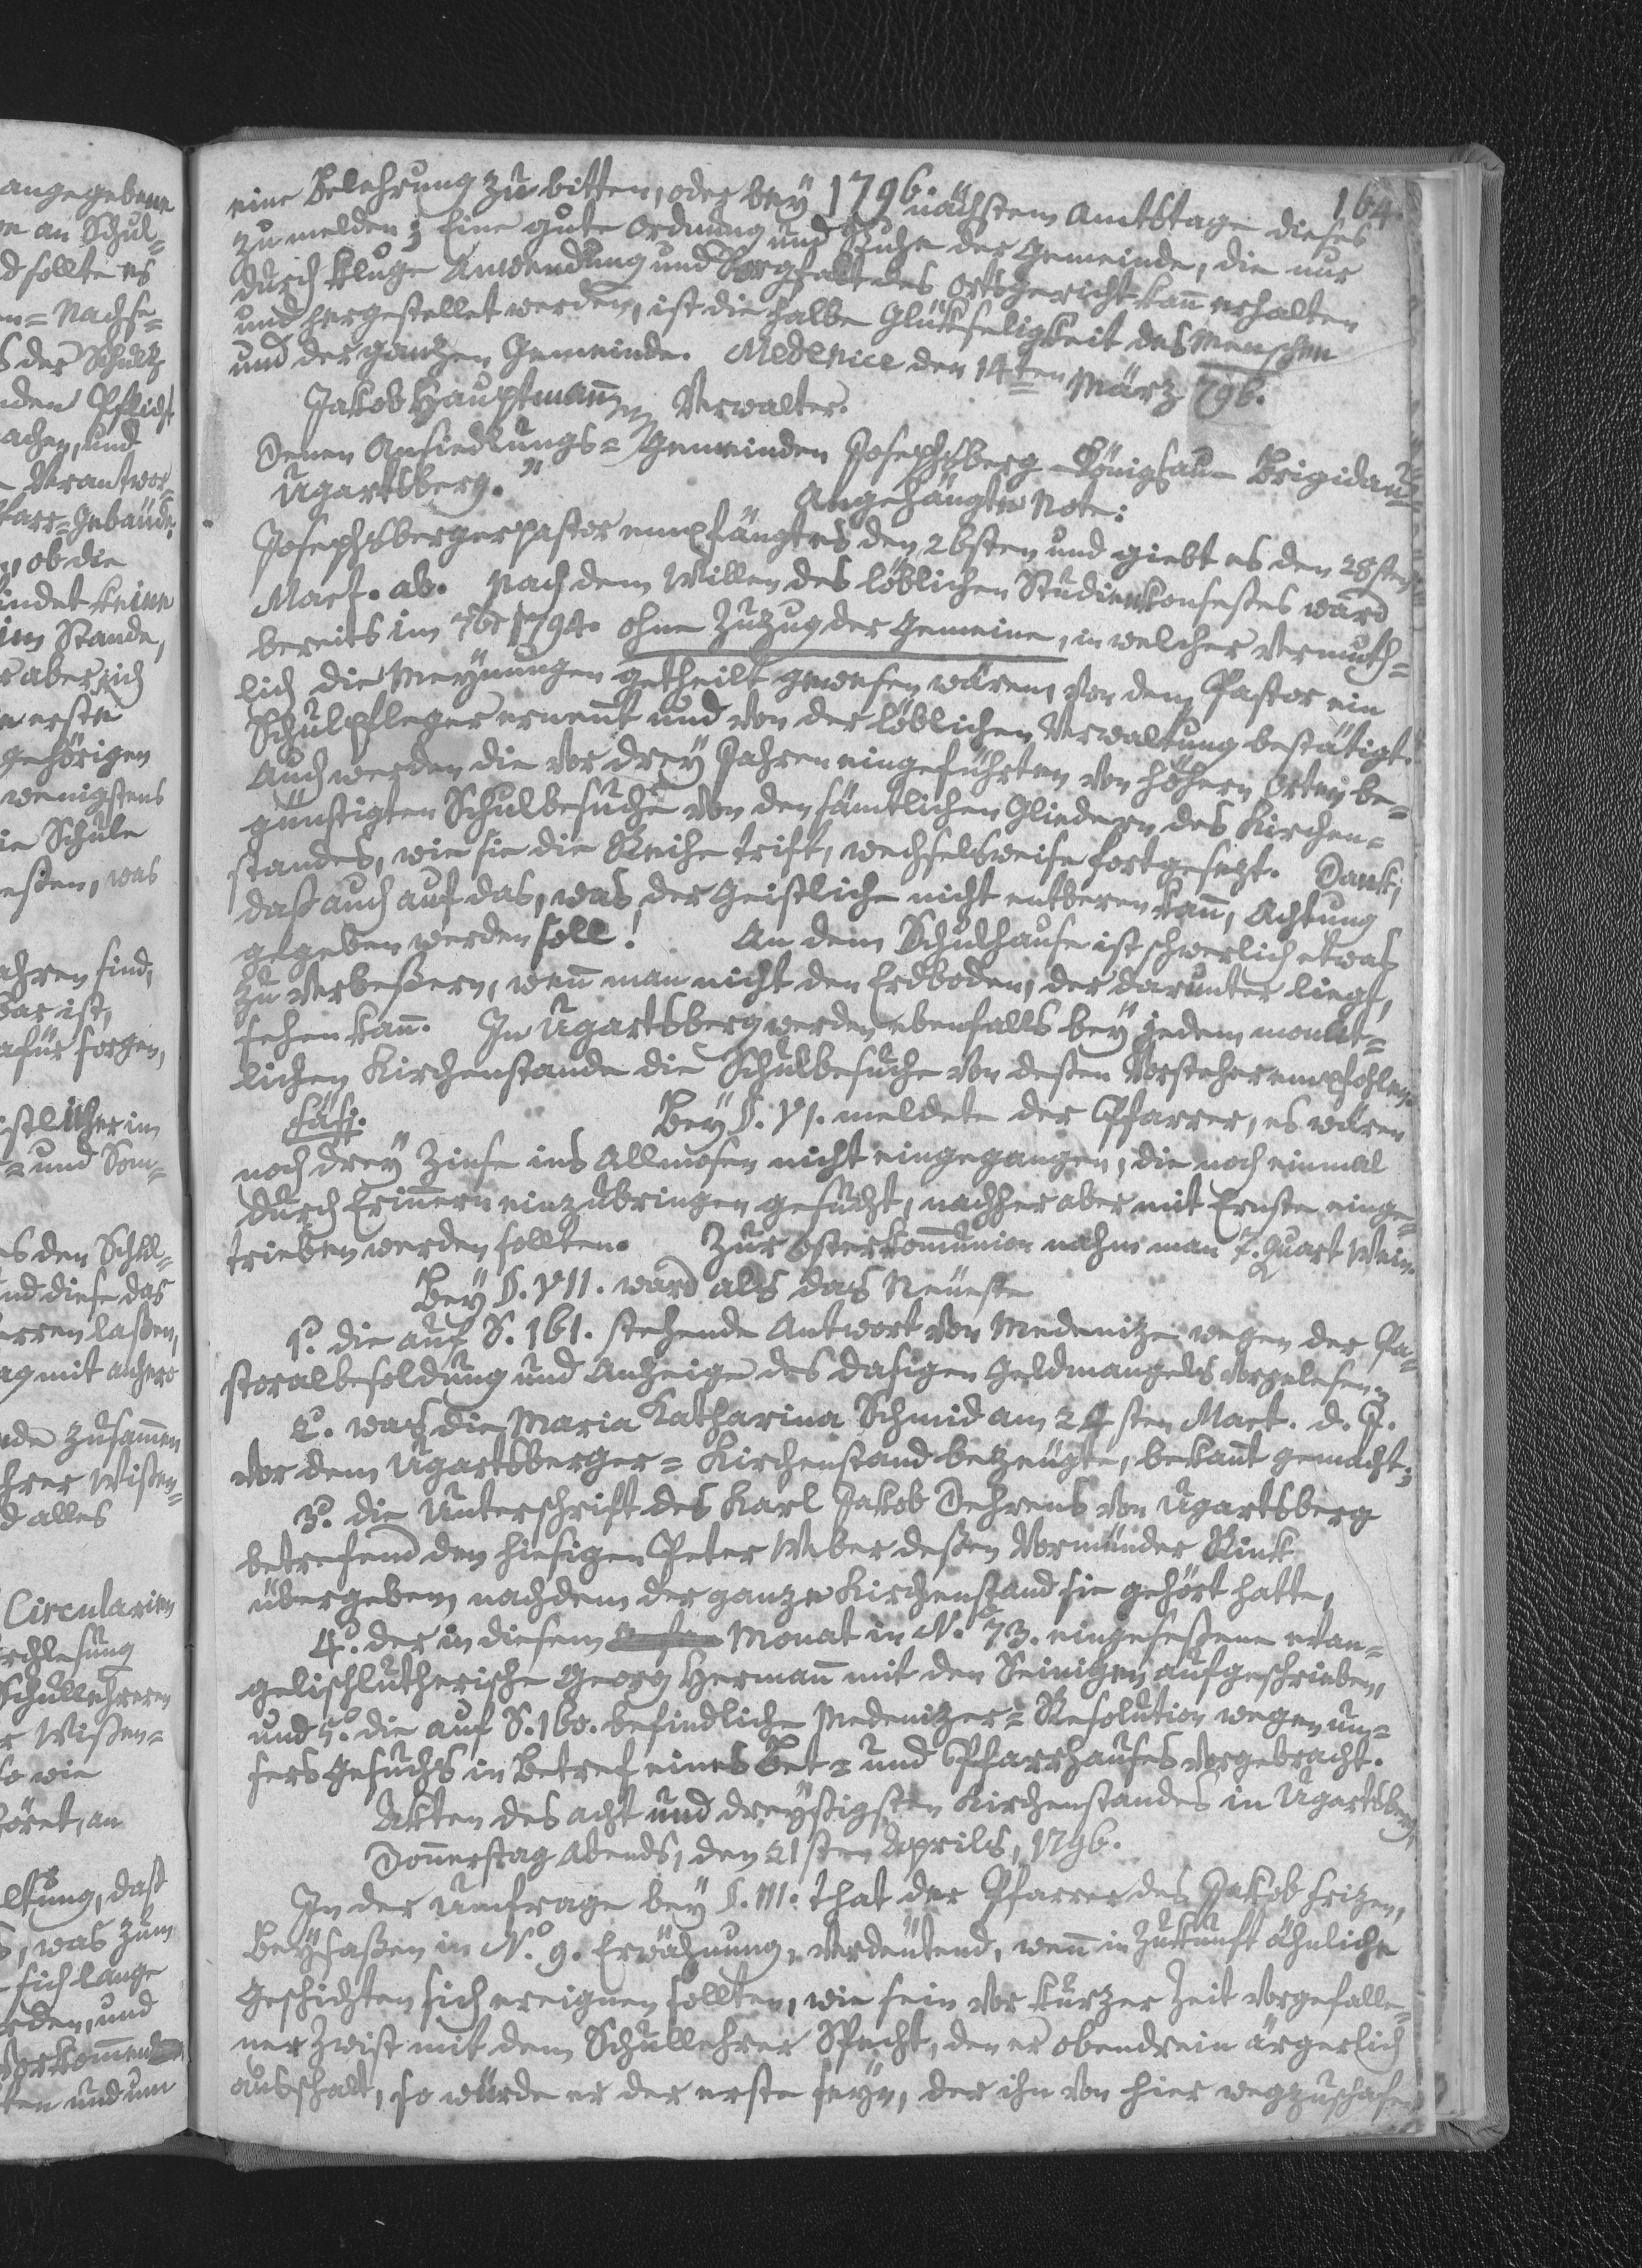 1796.
164.
eine Belehrung zu bitten, oder bey nächstem Amtstage dieses
zu melden; Eine gute Ordnung und Ruhe der Gemeinde, die nur
durch kluge Anwendung und Sorgfalt des Ortsgericht kan̄ erhalten
und hergestellet werden, ist die halbe Glükseligkeit des Menschen
und der ganzen Gemeinde. Medenice den 14ten März 796.
Jakob Hauptman̄ Verwalter.
Denen Ansiedlungs=Gemeinden Josephsberg Königsau Brigidau
Ugartsberg."
Angehängte Note:
Josephsberger Pastor empfängt es den 26sten und giebt es den 28sten
Mart. ab. Nach dem Willen des löblichen Studienkonseßes ward
bereits im 7br 1794. ohne Zuzug der Gemeine, in welcher vermuth=
lich die Meynungen getheilt gewesen wären, von dem Pastor ein
Schulpfleger ernen̄t und von der löblichen Verwaltung bestätigt.
Auch werden die vor drey Jahren eingeführten von höhern Orten be=
günstigten Schulbesuche von den sämtlichen Gliedern des Kirchen=
standes, wie sie die Reihe trift, wechselsweise fortgesezt. Dank,
daß auch auf das, was der Geistliche nicht entberen kan̄, Achtung
gegeben werden soll! An dem Schulhause ist schwerlich etwas
zu verbeßern, wen̄ man nicht den Erdboden, der darunter liegt,
sehen kan̄. In Ugartsberg werden ebenfalls bey jedem monat=
lichen Kirchenstande die Schulbesuche von deßen Vorsteher empfohlen.
Bey §. VI. meldete der Pfarrer, es wären
noch drey Zinse ins Allmosen nicht eingegangen, die noch einmal
durch Erin̄ern einzubringen gesucht, nachher aber mit Ernste einge=
trieben werden sollten. Zur Osterkom̄union nahm man 7. Quart Wein.
Bey §. VII. ward als das Neueste
1o. die auf S. 161. stehende Antwort von Medenitze wegen der Pa=
storalbesoldung und Anzeige des dasigen Geldmangels vorgelesen;
2o. was die Maria Katharina Schmid am 24sten Mart. d. J.
vor dem Ugartsberger=Kirchenstand bezeugte, bekan̄t gemacht;
3o. die Unterschrift des Karl Jakob Dehrens von Ugartsberg
betrefend den hiesigen Peter Weber deßen Vormünder Rink
übergeben, nachdem der ganze Kirchenstand sie gehört hatte,
4o. der in diesem Monat in No. 73. eingeseßene evan=
gelischlutherische Georg Herman̄ mit den Seinigen aufgeschrieben,
und 5o. die auf S. 160. befindliche Medenitzer=Resolution wegen un=
sers Gesuchs in Betref eines Bet= und Pfarrhauses vorgebracht.
Akten des acht und dreyßigsten Kirchenstandes in Ugartsberg,
Don̄erstag Abends, den 21sten Aprils, 1796.
In der Umfrage bey §. III. that der Pfarrer des Jakob Frizen,
Beysaßen in No. 9. Erwähnung, verdeutend, wen̄ in Zukunft ähnliche
Geschichten sich ereignen sollten, wie sein vor kurzer Zeit vorgefalle=
ner Zwist mit dem Schullehrer Specht, den er obendrein ärgerlich
ausschalt, so würde er der erste seyn, der ihn von hier wegzuschafen